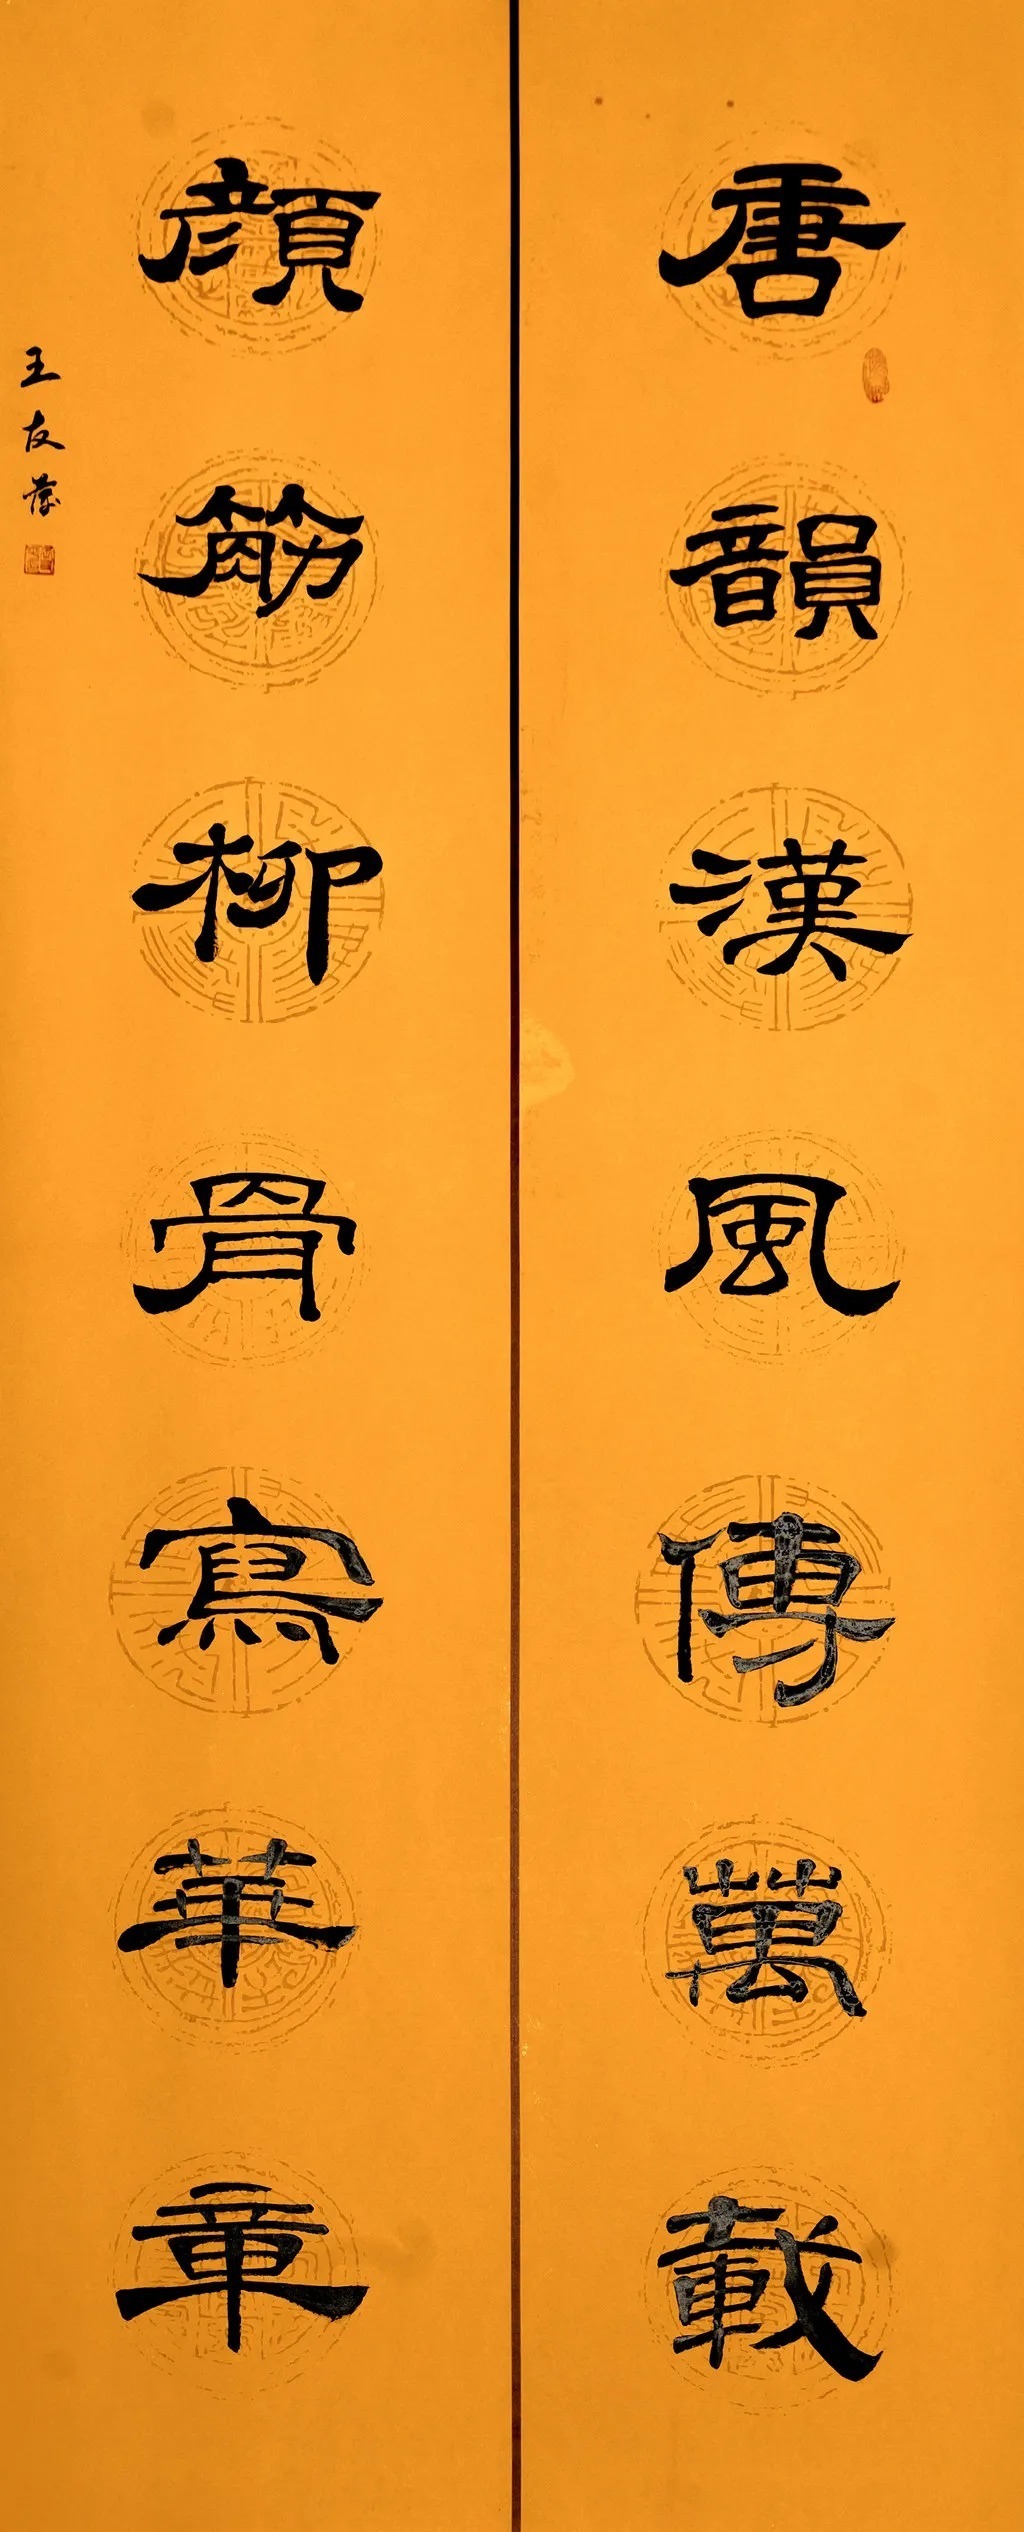 唐韻漢風傳萬載
顏筋柳骨寫華章
王友